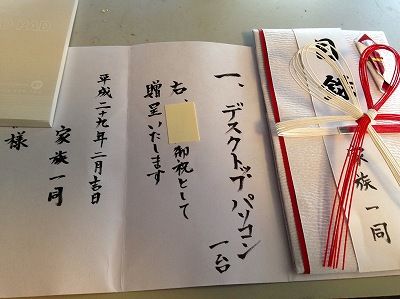 家族一同
一、デスクトップパソコン
一台
右、御祝として
贈呈いたします
平成二十九年二月吉日
家族一同
様